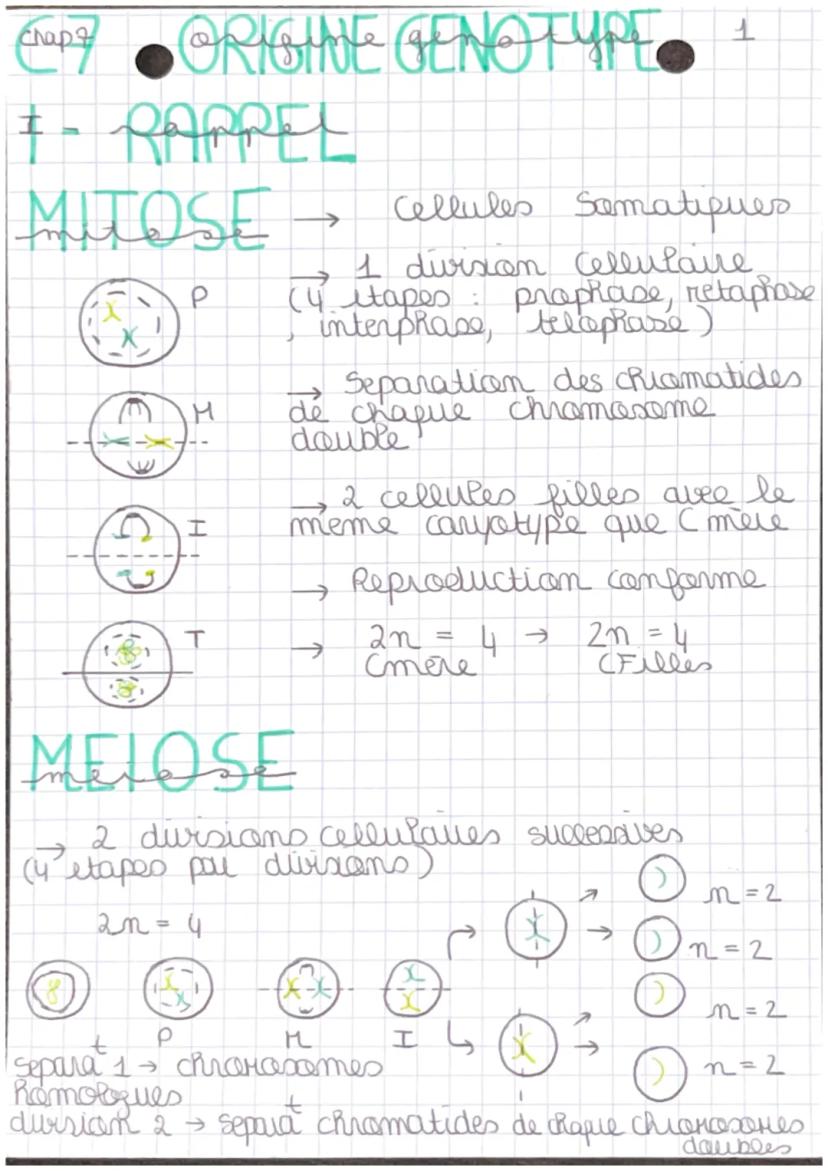 Chap 7 C7 ORIGINE GENOTYPE 1
I - RAPPEL
MITOSE → Cellules Somatiques
P
→ 1 division Cellulaire
(4 étapes : prophase, métaphase
, interphase, telophase)
M
→ Separation des chromatides
de chaque chromosome
double
→ 2 cellules filles avec le
I
même caryotype que C mère
→ Reproduction conforme
T
→ 2n = 4 → 2n = 4
Cmère CFilles
MEIOSE
→ 2 divisions cellulaires successives
(4 etapes par divisions)
n = 2
2n = 4
n = 2
n = 2
P M I
n = 2
separat 1 → chromosomes
homologues
division 2 → separat chromatides de chaque chromosomes
doubles